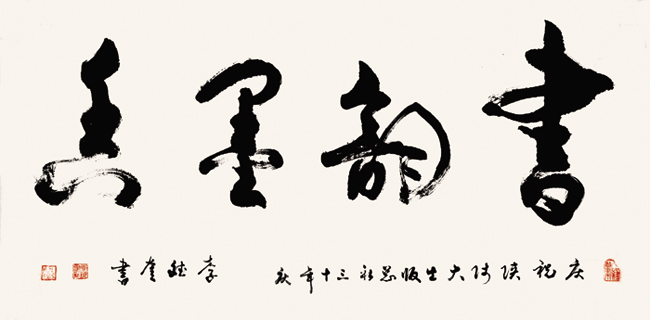 書韵墨香
庆祝陕师大出版总社三十年庆 李继凯書